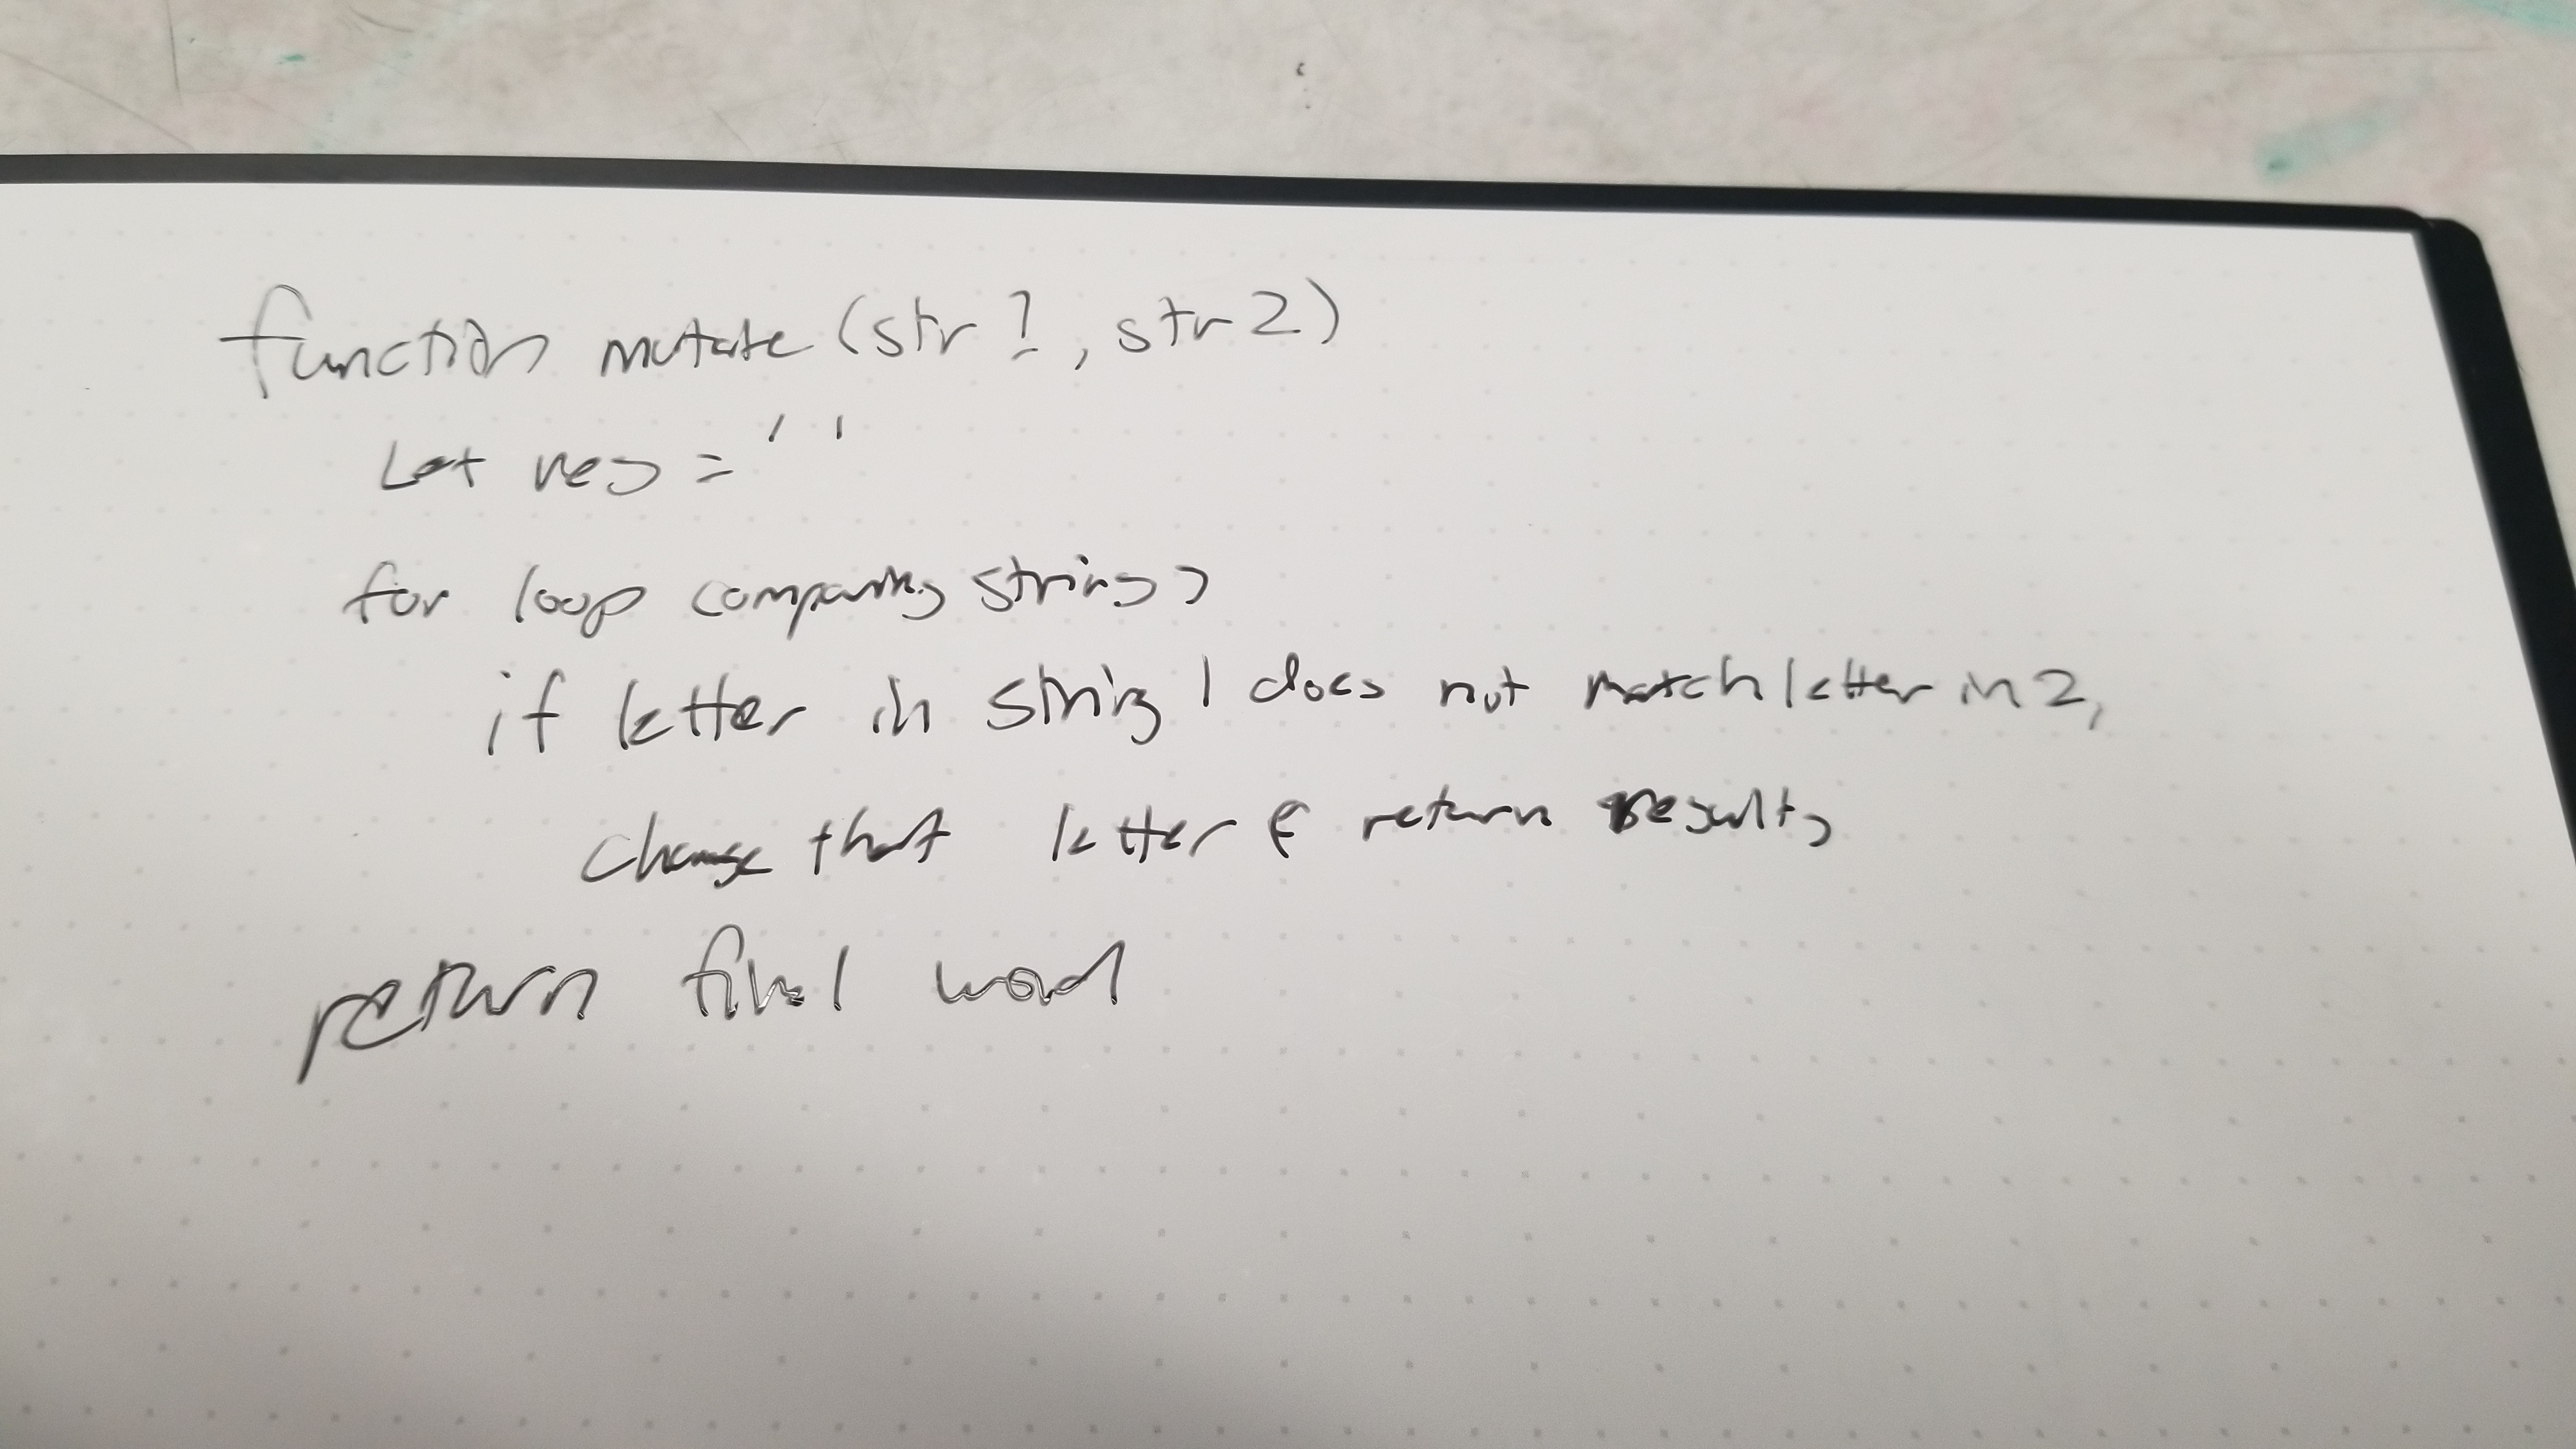 function mutate (str1, str2)
Let res = ' '
for loop comparing strings
if letter in string 1 does not match letter in 2,
change that letter & return results
return final word